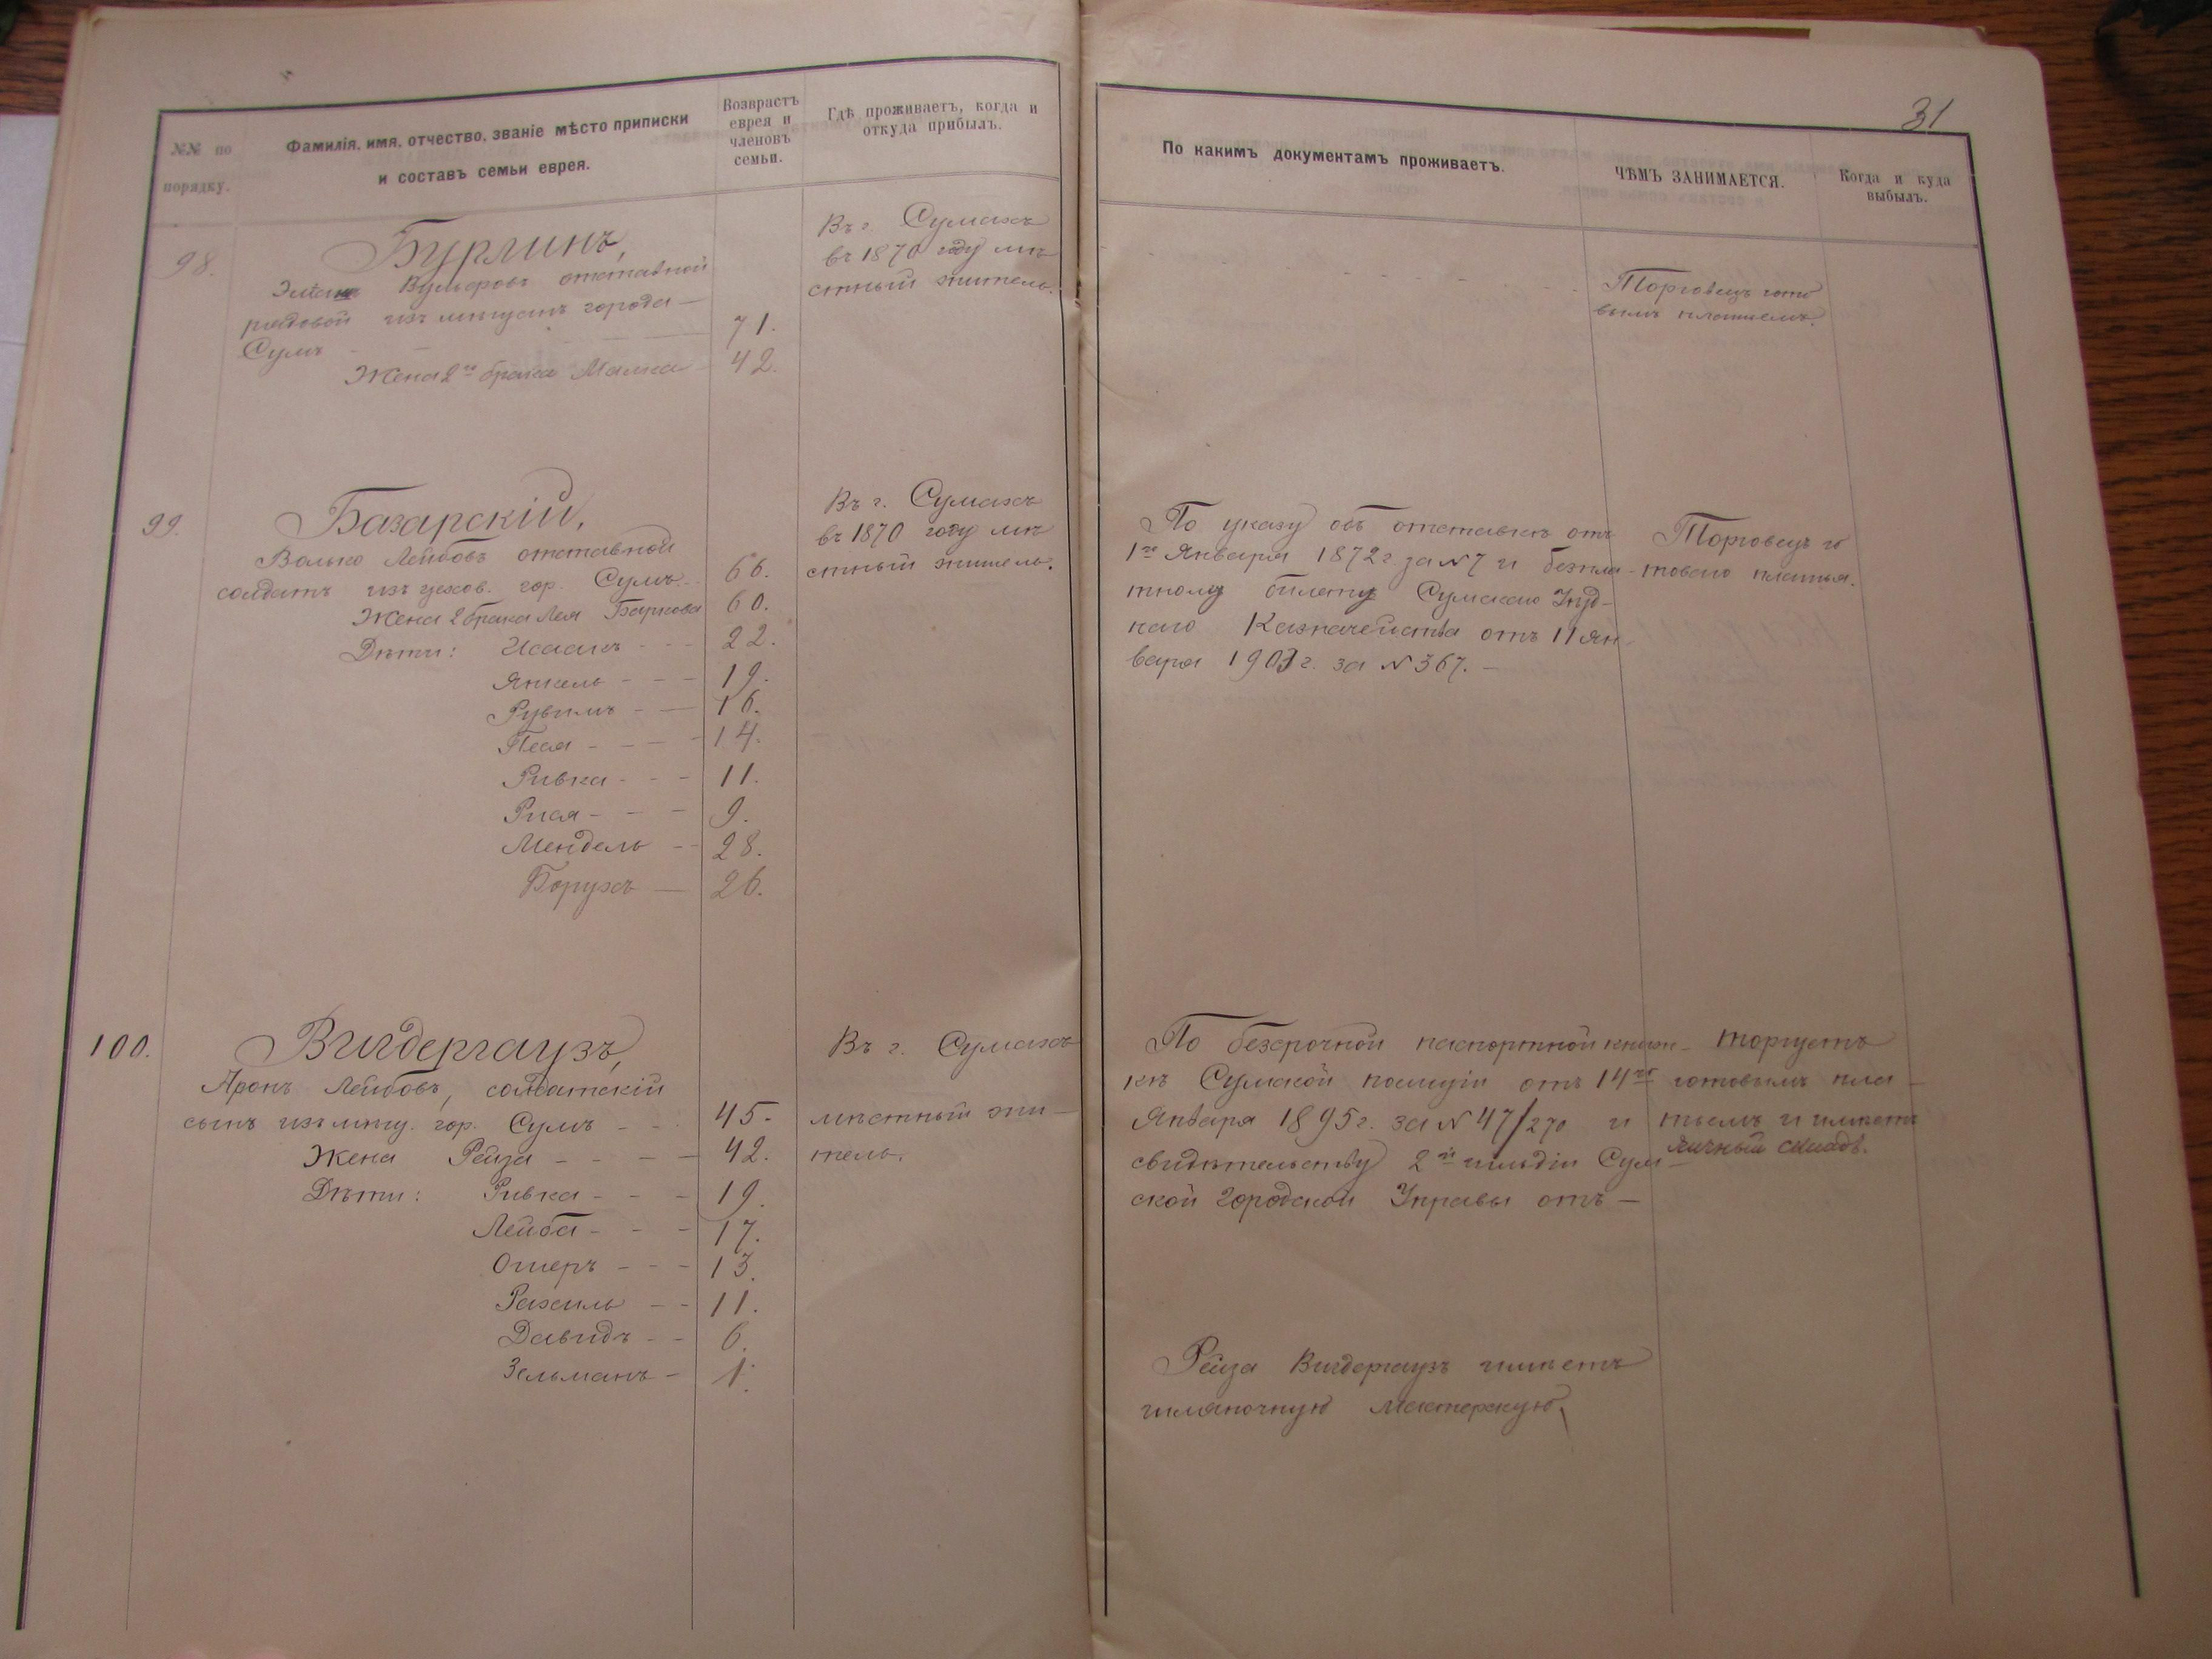 31
№№ по порядку.
Фамилія, имя, отчество, званіе мѣсто приписки
и составъ семьи еврея.
Возврастъ
еврея и
членовъ
семьи.
Гдѣ проживаетъ, когда и
откуда прибылъ.
По какимъ документамъ проживаетъ.
ЧѢМЪ ЗАНИМАЕТСЯ.
Когда и куда
выбылъ.
98.
Бурлинъ,
отставной
рядовой изъ города —
Сумъ 71.
Жена 2го брака 42.
Въ г. Сумахъ
въ 1870 году мѣ
стный житель.
Торговецъ гото
вымъ платьемъ.
99.
Базарскій,
Волько Лейбовъ отставной
солдатъ изъ цехов. гор. Сумъ 66.
Жена 2 брака Лея Боркова 60.
Дѣти: Исаакъ - - - 22.
Янкель - - - 19.
Рувимъ - — 16.
Песя - - — - 14.
Ривка - - - 11.
Рися - - - 9.
Мендель - - 28.
Борухъ — 26.
Въ г. Сумахъ
въ 1870 году мѣ
стный житель.
По указу объ отставкѣ отъ
1го Января 1872 г. за № 7 и безпла-
тному билету Сумскаго Уѣзд-
наго Казначейства отъ 11 Ян-
варя 1903 г. за № 367. —
Торговецъ го
товаго платья.
100.
Вигдергаузъ,
Аронъ Лейбовъ, солдатскій
сынъ изъ мѣщ. гор. Сумъ - - 45.
Жена Рейза - - - — 42.
Дѣти: Ривка - - - 19.
Лейба - - - 17.
Ошеръ - - - 13.
Рахиль - - 11.
Давидъ - - 6.
Зельманъ - 1.
Въ г. Сумахъ
мѣстный жи —
тель.
По безсрочной паспортной книж-
кѣ Сумской полиціи отъ 14го
Января 1895 г. за № 47/270 и
свидѣтельству 2й гильдіи Сум —
ской Городской Управы отъ —
торгуетъ
готовымъ пла —
тьемъ и имѣетъ
яичный складъ.
Рейза Вигдергаузъ имѣетъ
шляпочную мастерскую.